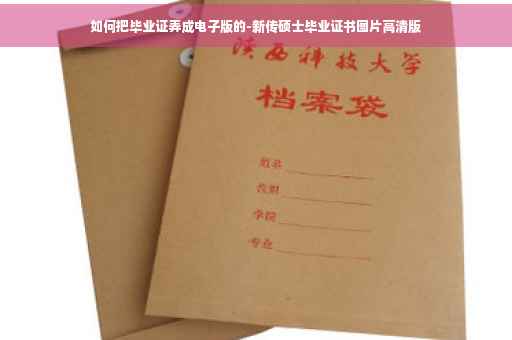 如何把毕业证弄成电子版的-新传硕士毕业证书图片高清版
陕西科技大学
档案袋
姓名
学院
专业